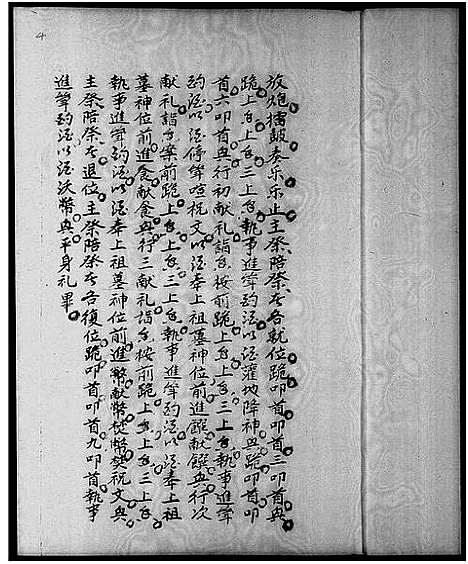 4
放炮擂鼓奏乐乐止主祭陪祭者各就位跪叩首叩首三叩首兴
跪上香上香三上香执事进爵酌酒以酒灌地降神兴跪叩首叩
首六叩首兴行初献礼诣香按前跪上香上香三上香执事進爵
酌酒以酒俸爵 祝文以酒奉上祖墓神位前進饌献饌兴行次
献礼詣香案前跪上香上香三上香执事進爵酌酒以酒奉上祖
墓神位前進食献食兴行三献礼詣香按前跪上香上香三上香
執事進爵酌酒以酒奉上祖墓神位前進幣献幣焚幣焚祝文兴
主祭陪祭者退位主祭陪祭者各復位跪叩首叩首九叩首执事
進爵酌酒以酒沃幣兴平身礼畢